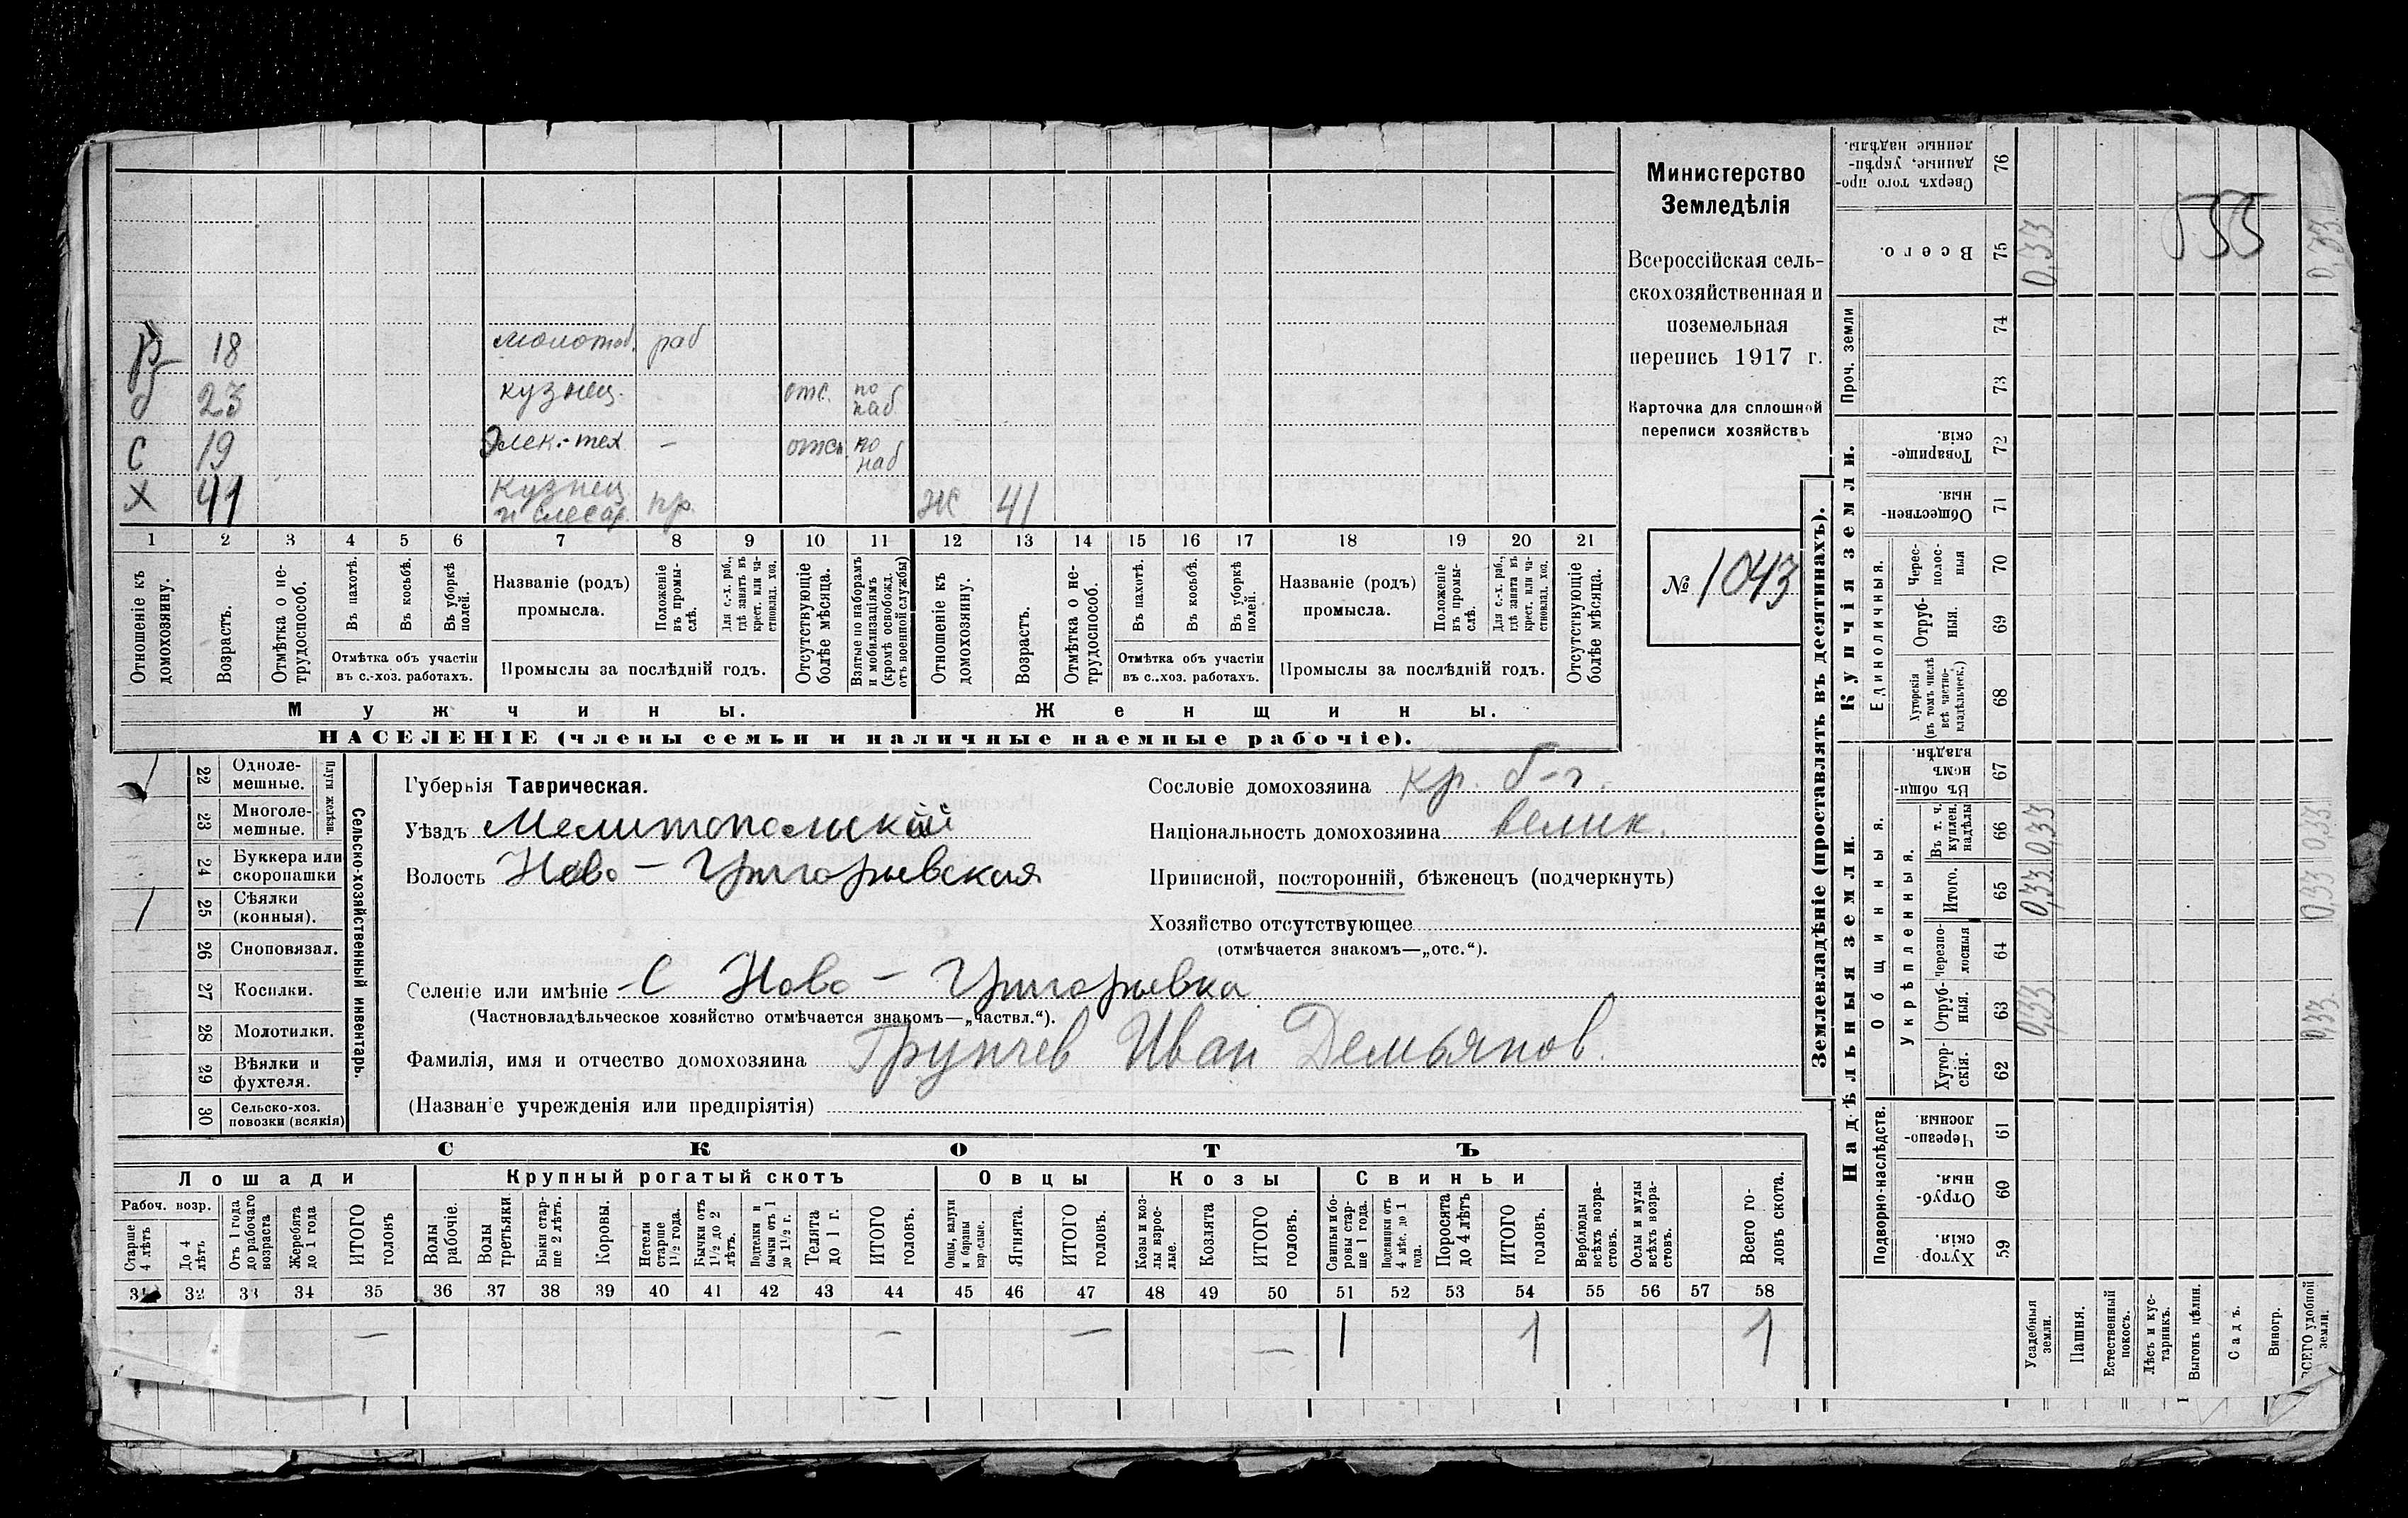 Министерство
Земледѣлія
Всероссійская сель-
скохозяйственная и
поземельная
перепись 1917 г.
Карточка для сплошной
переписи хозяйствъ
№ 1043
555
18 молотоб. раб
б 23 кузнец. отс. по наб
С 19 Элек.-тех — отсл. по наб
Х 41 Кузнец и слесар. пр. Ж 41
1 2 3 4 5 6 7 8 9 10 11 12 13 14 15 16 17 18 19 20 21
Отношеніе къ домохозяину.
Возрастъ.
Отмѣтка о не-трудоспособ.
Въ пахотѣ.
Въ косьбѣ.
Въ уборкѣ полей.
Отмѣтка объ участіи въ с.-хоз. работахъ.
Названіе (родъ) промысла.
Положеніе въ промы-слѣ.
Для с.-х. раб., гдѣ занятъ въ крест. или ча-стновлад. хоз.
Промыслы за послѣдній годъ.
Отсутствующіе болѣе мѣсяца.
Взятые по наборамъ и мобилизаціямъ (кромѣ освобожд. отъ военной службы)
Отношеніе къ домохозяину.
Возрастъ.
Отмѣтка о не-трудоспособ.
Въ пахотѣ.
Въ косьбѣ.
Въ уборкѣ полей.
Отмѣтка объ участіи въ с..хоз. работахъ.
Названіе (родъ) промысла.
Положеніе въ промы-слѣ.
Для с.-х. раб., гдѣ занята въ крест. или ча-стновлад. хоз.
Промыслы за послѣдній годъ.
Отсутствующіе болѣе мѣсяца.
Мужчины. Женщины.
НАСЕЛЕНІЕ (члены семьи и наличные наемные рабочіе).
Сельско-хозяйственный инвентарь.
Плуги желѣзн.
22 Одноле-мешные. 1
23 Многоле-мешные.
24 Буккера или скоропашки
25 Сѣялки (конныя). 1
26 Сноповязал.
27 Косилки.
28 Молотилки.
29 Вѣялки и фухтеля.
30 Сельско-хоз. повозки (всякія)
Губернія Таврическая.
Уѣздъ Мелитопольский
Волость Ново-Григорьевская
Сословіе домохозяина кр. б-г.
Національность домохозяина велик.
Приписной, посторонній, бѣженецъ (подчеркнуть)
Хозяйство отсутствующее
(отмѣчается знакомъ—„отс.“).
Селеніе или имѣніе С Ново-Григорьевка
(Частновладѣльческое хозяйство отмѣчается знакомъ—„частвл.“).
Фамилія, имя и отчество домохозяина Иван Демьянов.
(Названіе учрежденія или предпріятія)
СКОТЪ
Лошади Крупный рогатый скотъ Овцы Козы Свиньи
Рабоч. возр.
Старше 4 лѣтъ
До 4 лѣтъ
Отъ 1 года до рабочаго возраста
Жеребята до 1 года
ИТОГО головъ
Волы рабочіе.
Волы третьяки
Быки стар-ше 2 лѣтъ.
Коровы.
Нетели старше 1 1/2 года.
Бычки отъ 1 1/2 до 2 лѣтъ.
Подтелки и бычки отъ 1 до 1 1/2 г.
Телята до 1 г.
ИТОГО головъ.
Овцы, валухи и бараны взрослые.
Ягнята.
ИТОГО головъ.
Козы и коз-лы взрос-лые.
Козлята
ИТОГО головъ.
Свиньи и бо-ровы стар-ше 1 года.
Подсвинки отъ 4 мѣс. до 1 года.
Поросята до 4 лѣтъ
ИТОГО головъ.
Верблюды всѣхъ возра-стовъ.
Ослы и мулы всѣхъ возра-стовъ.
Всего го-ловъ скота.
31 32 33 34 35 36 37 38 39 40 41 42 43 44 45 46 47 48 49 50 51 52 53 54 55 56 57 58
— — — — 1 1 1
Землевладѣніе (проставлять въ десятинахъ).
Купчія земли.
Надѣльныя земли.
Сверхъ того про-данные, укрѣп-ленные надѣлы. 76
Всего. 75 0,33 0,33
Проч. земли 74 73
Товарище-скія. 72
Обществен-ныя. 71
Единоличныя.
Черес-полос-ныя 70
Отруб-ныя. 69
Хуторскія (въ томъ числѣ всѣ частно-владѣльческ.) 68
Общинныя.
Въ общи-номъ владѣн. 67
Укрѣпленныя.
Въ т. ч. куплен. надѣлы 66 0,33 0,33
Итого. 65 0,33 0,33
Черезпо-лосныя 64
Отруб-ныя. 63 0,33 0,33.
Хутор-скія. 62
Подворно-наслѣдств.
Черезпо-лосныя 61
Отруб-ныя. 60
Хутор-скія. 59
Усадебныя земли.
Пашня.
Естественный покосъ.
Лѣсъ и кус-тарникъ.
Выгонъ цѣлин.
Садъ.
Виногр.
ВСЕГО удобной земли.